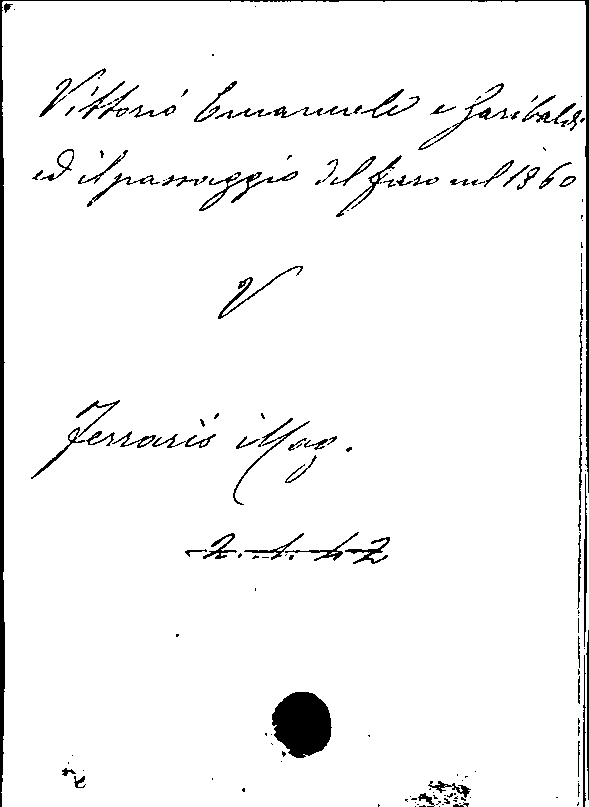 Vittorio Emanuele e Garibaldi
ed il passaggio del faro nel 1860
V
Ferraris Mag.
2.1.42